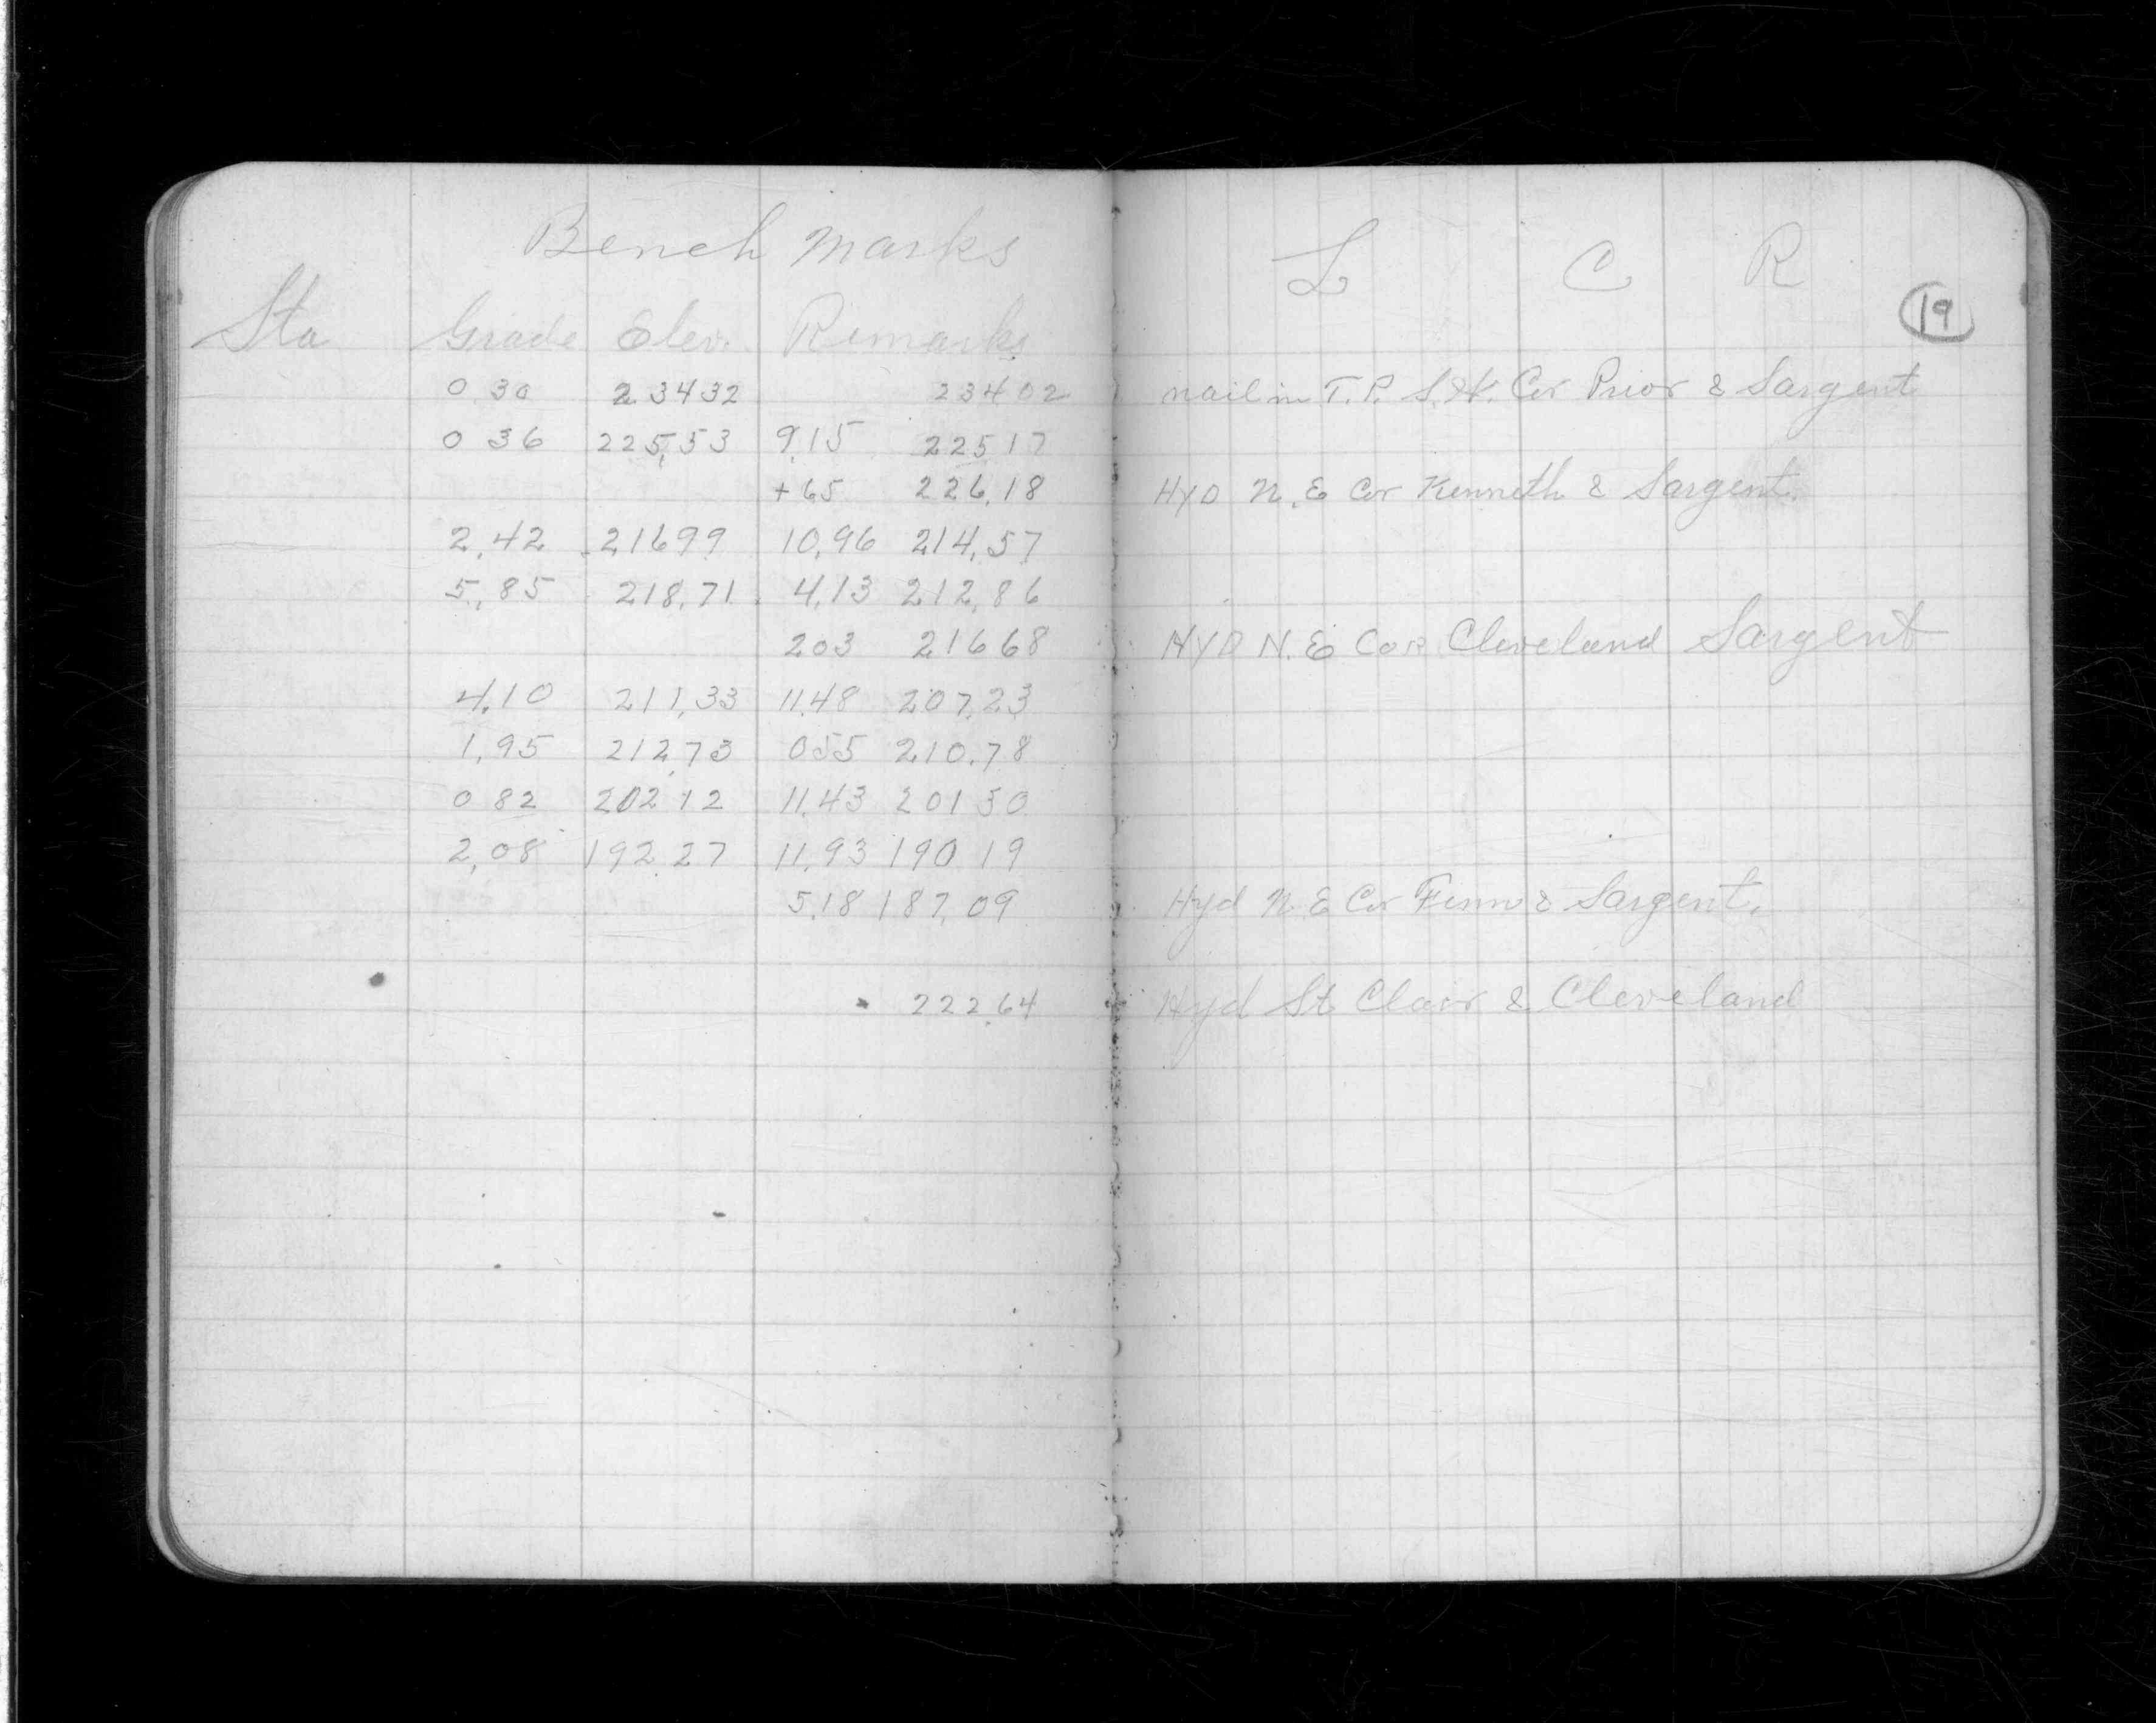 Bench Marks
Sta Grade Elev. Remarks
0 30 234 32 234 02
0 36 225,53 9,15 225 17
+65 226,18
2,42 216 99 10,96 214,57
5,85 218,71 4,13 212,86
203 216 68
4,10 211,33 11,48 207,23
1,95 212,73 055 210.78
0 82 202 12 11,43 201 30
2,08 192.27 11,93 190 19
5,18 187,09
222,64
L C R
19
nail in T.P. S.W. Cor Prior & Sargent
HYD N.E Cor Kenneth & Sargent.
HYD N.E Cor Cleveland Sargent
Hyd N E Cor Finn & Sargent.
Hyd St Clair & Cleveland